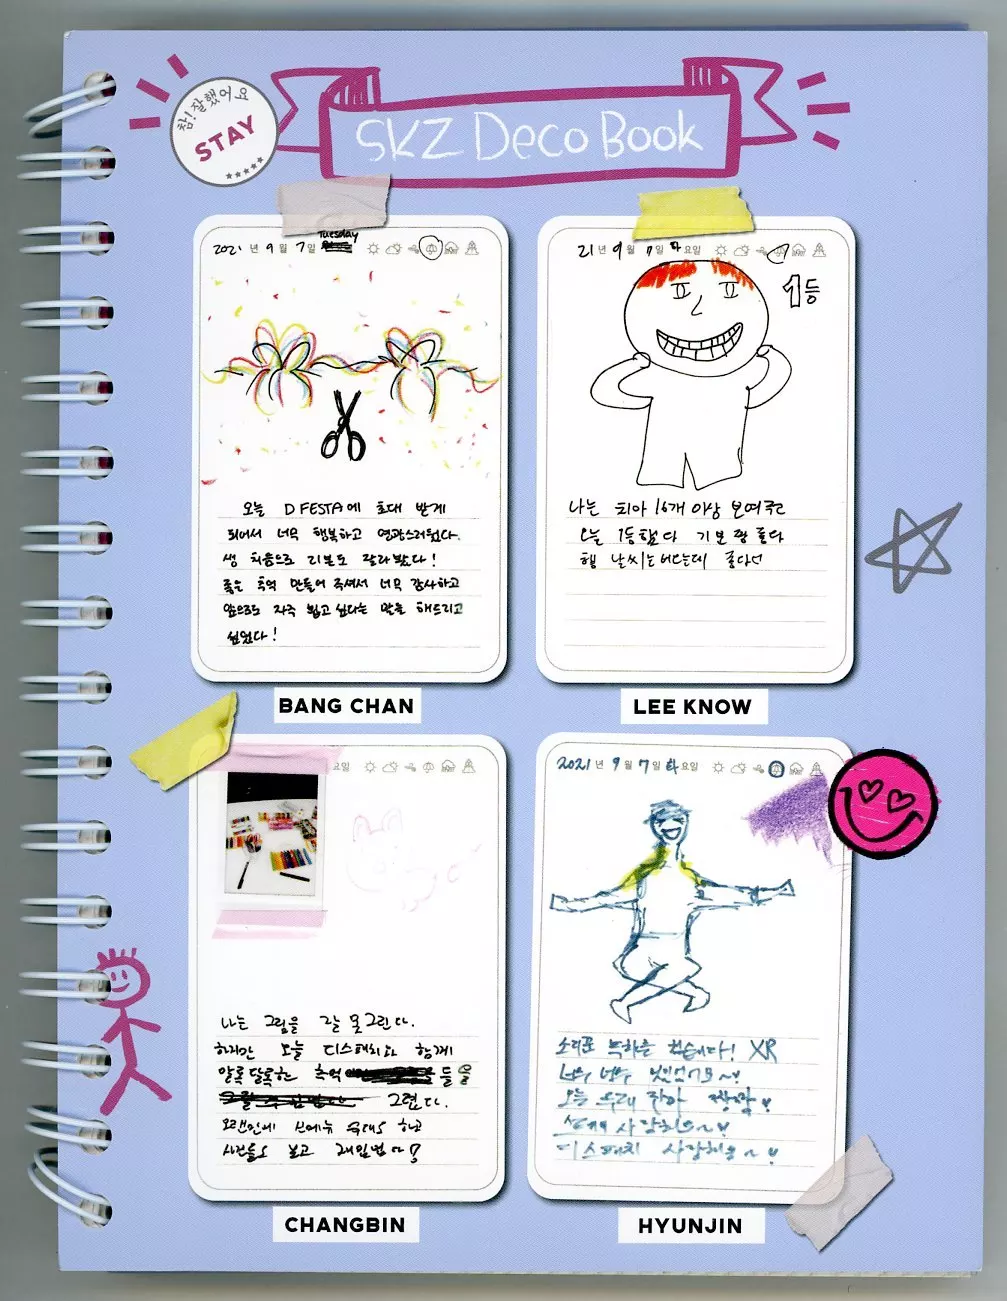 참! 잘했어요
STAY
SKZ Deco Book
2021년 9월 7일 Tuesday
오늘 D FESTA에 초대 받게
되어서 너무 행복하고 영광스러웠다.
생 처음으로 리본도 잘라봤다!
좋은 추억 만들어 주셔서 너무 감사하고
앞으로도 자주 뵙고 싶다는 말을 해드리고
싶었다!
BANG CHAN
21년 9월 7일 화요일
1등
나는 치아 16개 이상 보여준
오늘 1등했다 기분 짱 좋다
날씨는
LEE KNOW
요일
나는 그림을 잘 못 그린다.
하지만 오늘 디스패치와 함께
알록달록한 추억 들을
그렸다.
오랜만에 하고
사진들도 보고 재밌었다!
CHANGBIN
2021년 9월 7일 화요일
XR
너무 너무 멋있어요~!
오늘 우리 짱
사랑해요~
디스패치 사랑해요~
HYUNJIN